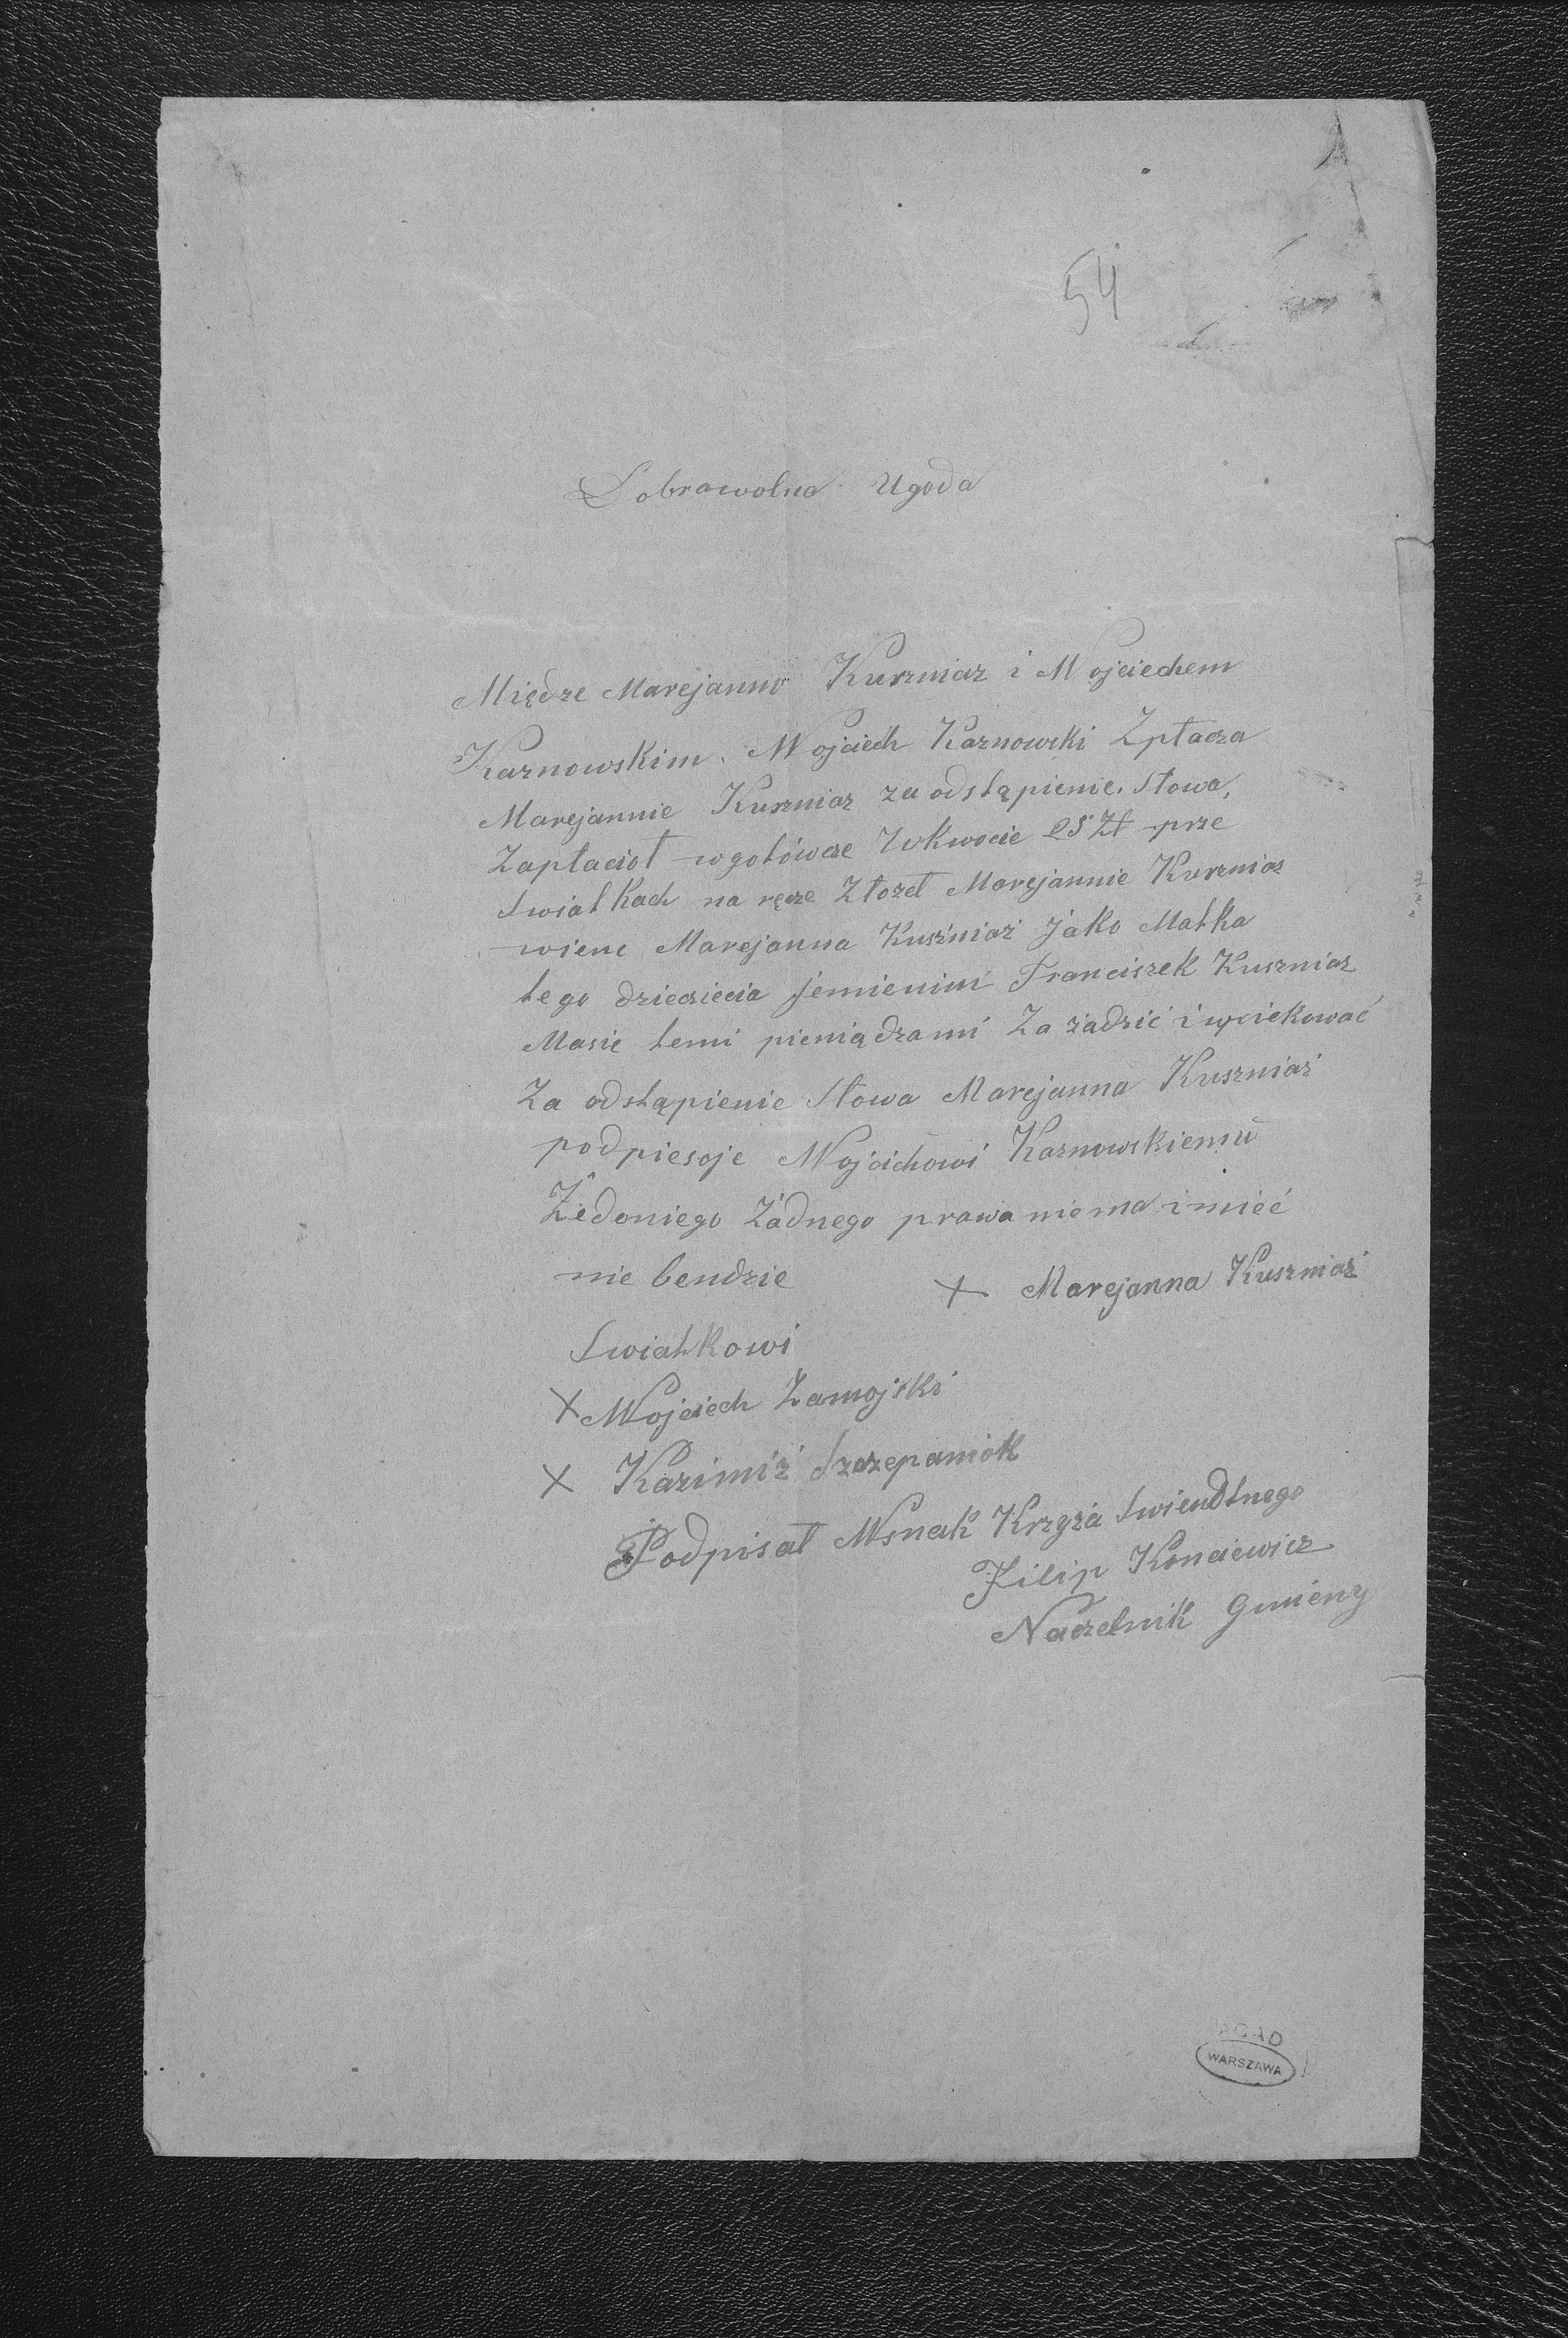 54
Dobrawolna Ugoda
Międze Marejanno Kuszniaz i Wojciechem
Karnowskim. Wojciech Karnowski Zptacza
Marejannie Kuszniaz za odstąpienie. Słowa,
Zapłaciot wgotówcze Wkwocie 25 Zł prze
Swiatkach na ręcze Złozeł Marejannie Kuszniaz
wienc Marejanna Kuszniaż jako Matka
tego dziecziecia jemienim Franciszek Kuszniaz
Masię temi pieniądzami Za żadzić i
Za odstąpienie Słowa Marejanna Kuszniaż
podpiesoje Wojcichowi Karnowskiemu
Żedoniego Żadnego prawa niema i mieć
nie bendzie + Marejanna Kuszniaż
Swiatkowi
X Wojciech Zamojski
X Kazimiż Szczepaniok
Podpisał Wsnak Krzyża Swiendtnego
Filip Konciewicz
Naczelnik Gmieny
AGAD
WARSZAWA